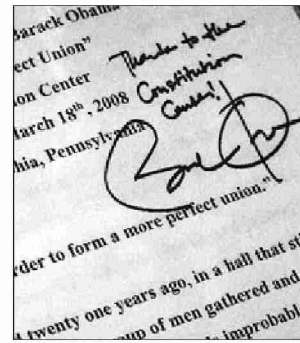 Barack Obama
ect Union"
on Center
March 18th, 2008
hia, Pennsylvania
Thanks to the
Constitution
Center!
rder to form a more perfect union."
d twenty one years ago, in a hall that sti
up of men gathered and
improbabl